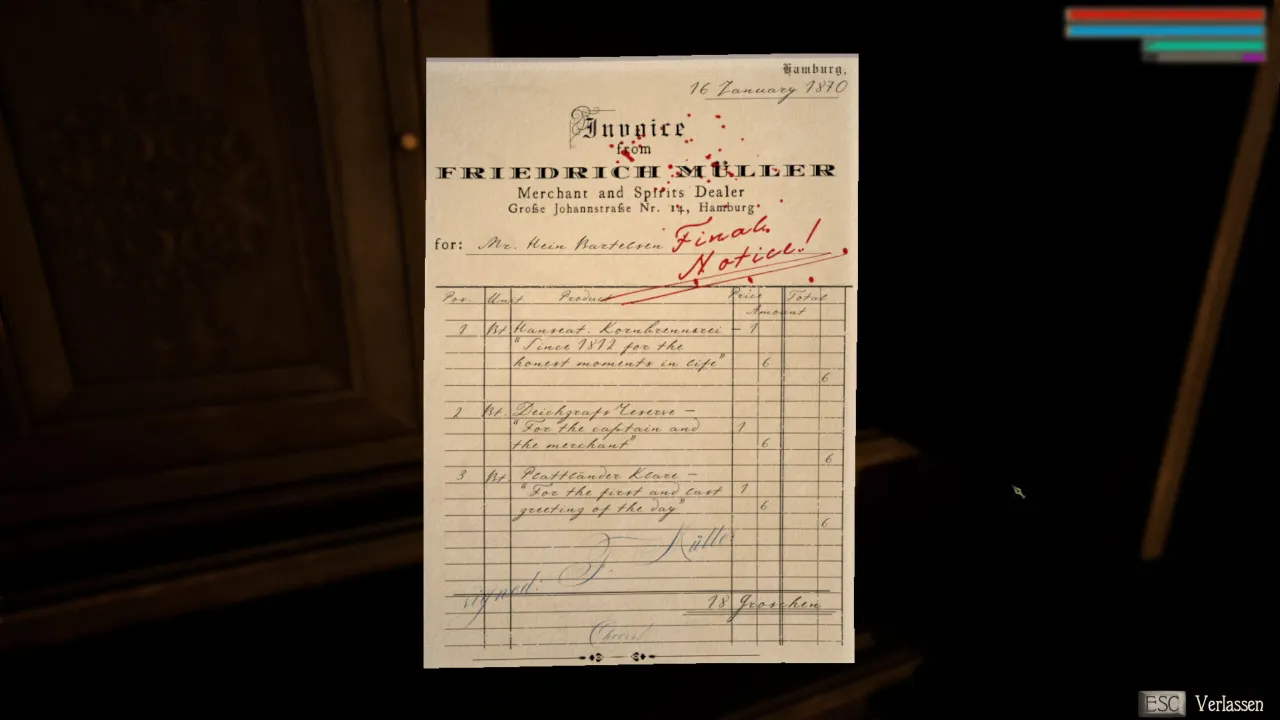 Hamburg,
16 January 1870
Invoice
from
FRIEDRICH MÜLLER
Merchant and Spirits Dealer
Große Johannstraße Nr. 14, Hamburg
for: Mr. Hein Bartelsen
Final
Notice!
Pos. Unit Product Price Total
Amount
1 Bt. Hanseat. Kornbrennerei – 1
"Since 1812 for the
honest moments in life" 6
6
2 Bt. Deichgrafs Reserve –
"For the captain and 1
the merchant" 6
6
3 Bt. Plattländer Klare –
"For the first and last 1
greeting of the day" 6
6
signed: F. Müller
18 Groschen
Cheers!
ESC Verlassen